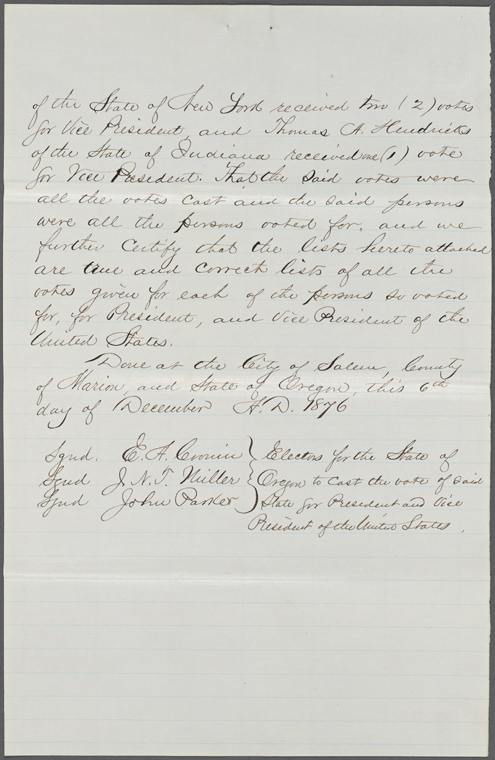 of the State of New York received two (2) votes
for Vice President, and Thomas A. Hendricks
of the State of Indiana received one (1) vote
for Vice President. That the said votes were
all the votes cast and the said persons
were all the persons voted for, and we
further Certify that the lists hereto attached
are true and correct lists of all the
votes given for each of the persons so voted
for, for President, and Vice President of the
United States.
Done at the City of Salem, County
of Marion, and State of Oregon, this 6th
day of December A.D. 1876
Sgnd. E. A. Cronin
Sgnd J. N. T. Miller
Sgnd John Parker
Electors for the State of
Oregon to Cast the vote of said
State for President and Vice
President of the United States.